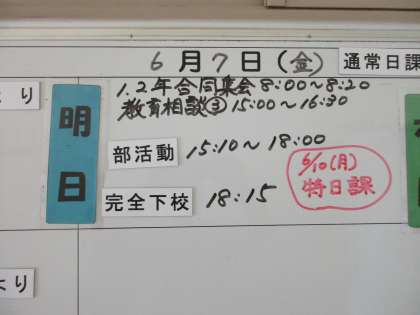 6月7日(金) 通常日課
より
明日
1.2年合同集会 8:00~8:20
教育相談③ 15:00~16:30
部活動 15:10~18:00
6/10(月)
特日課
完全下校 18:15
より